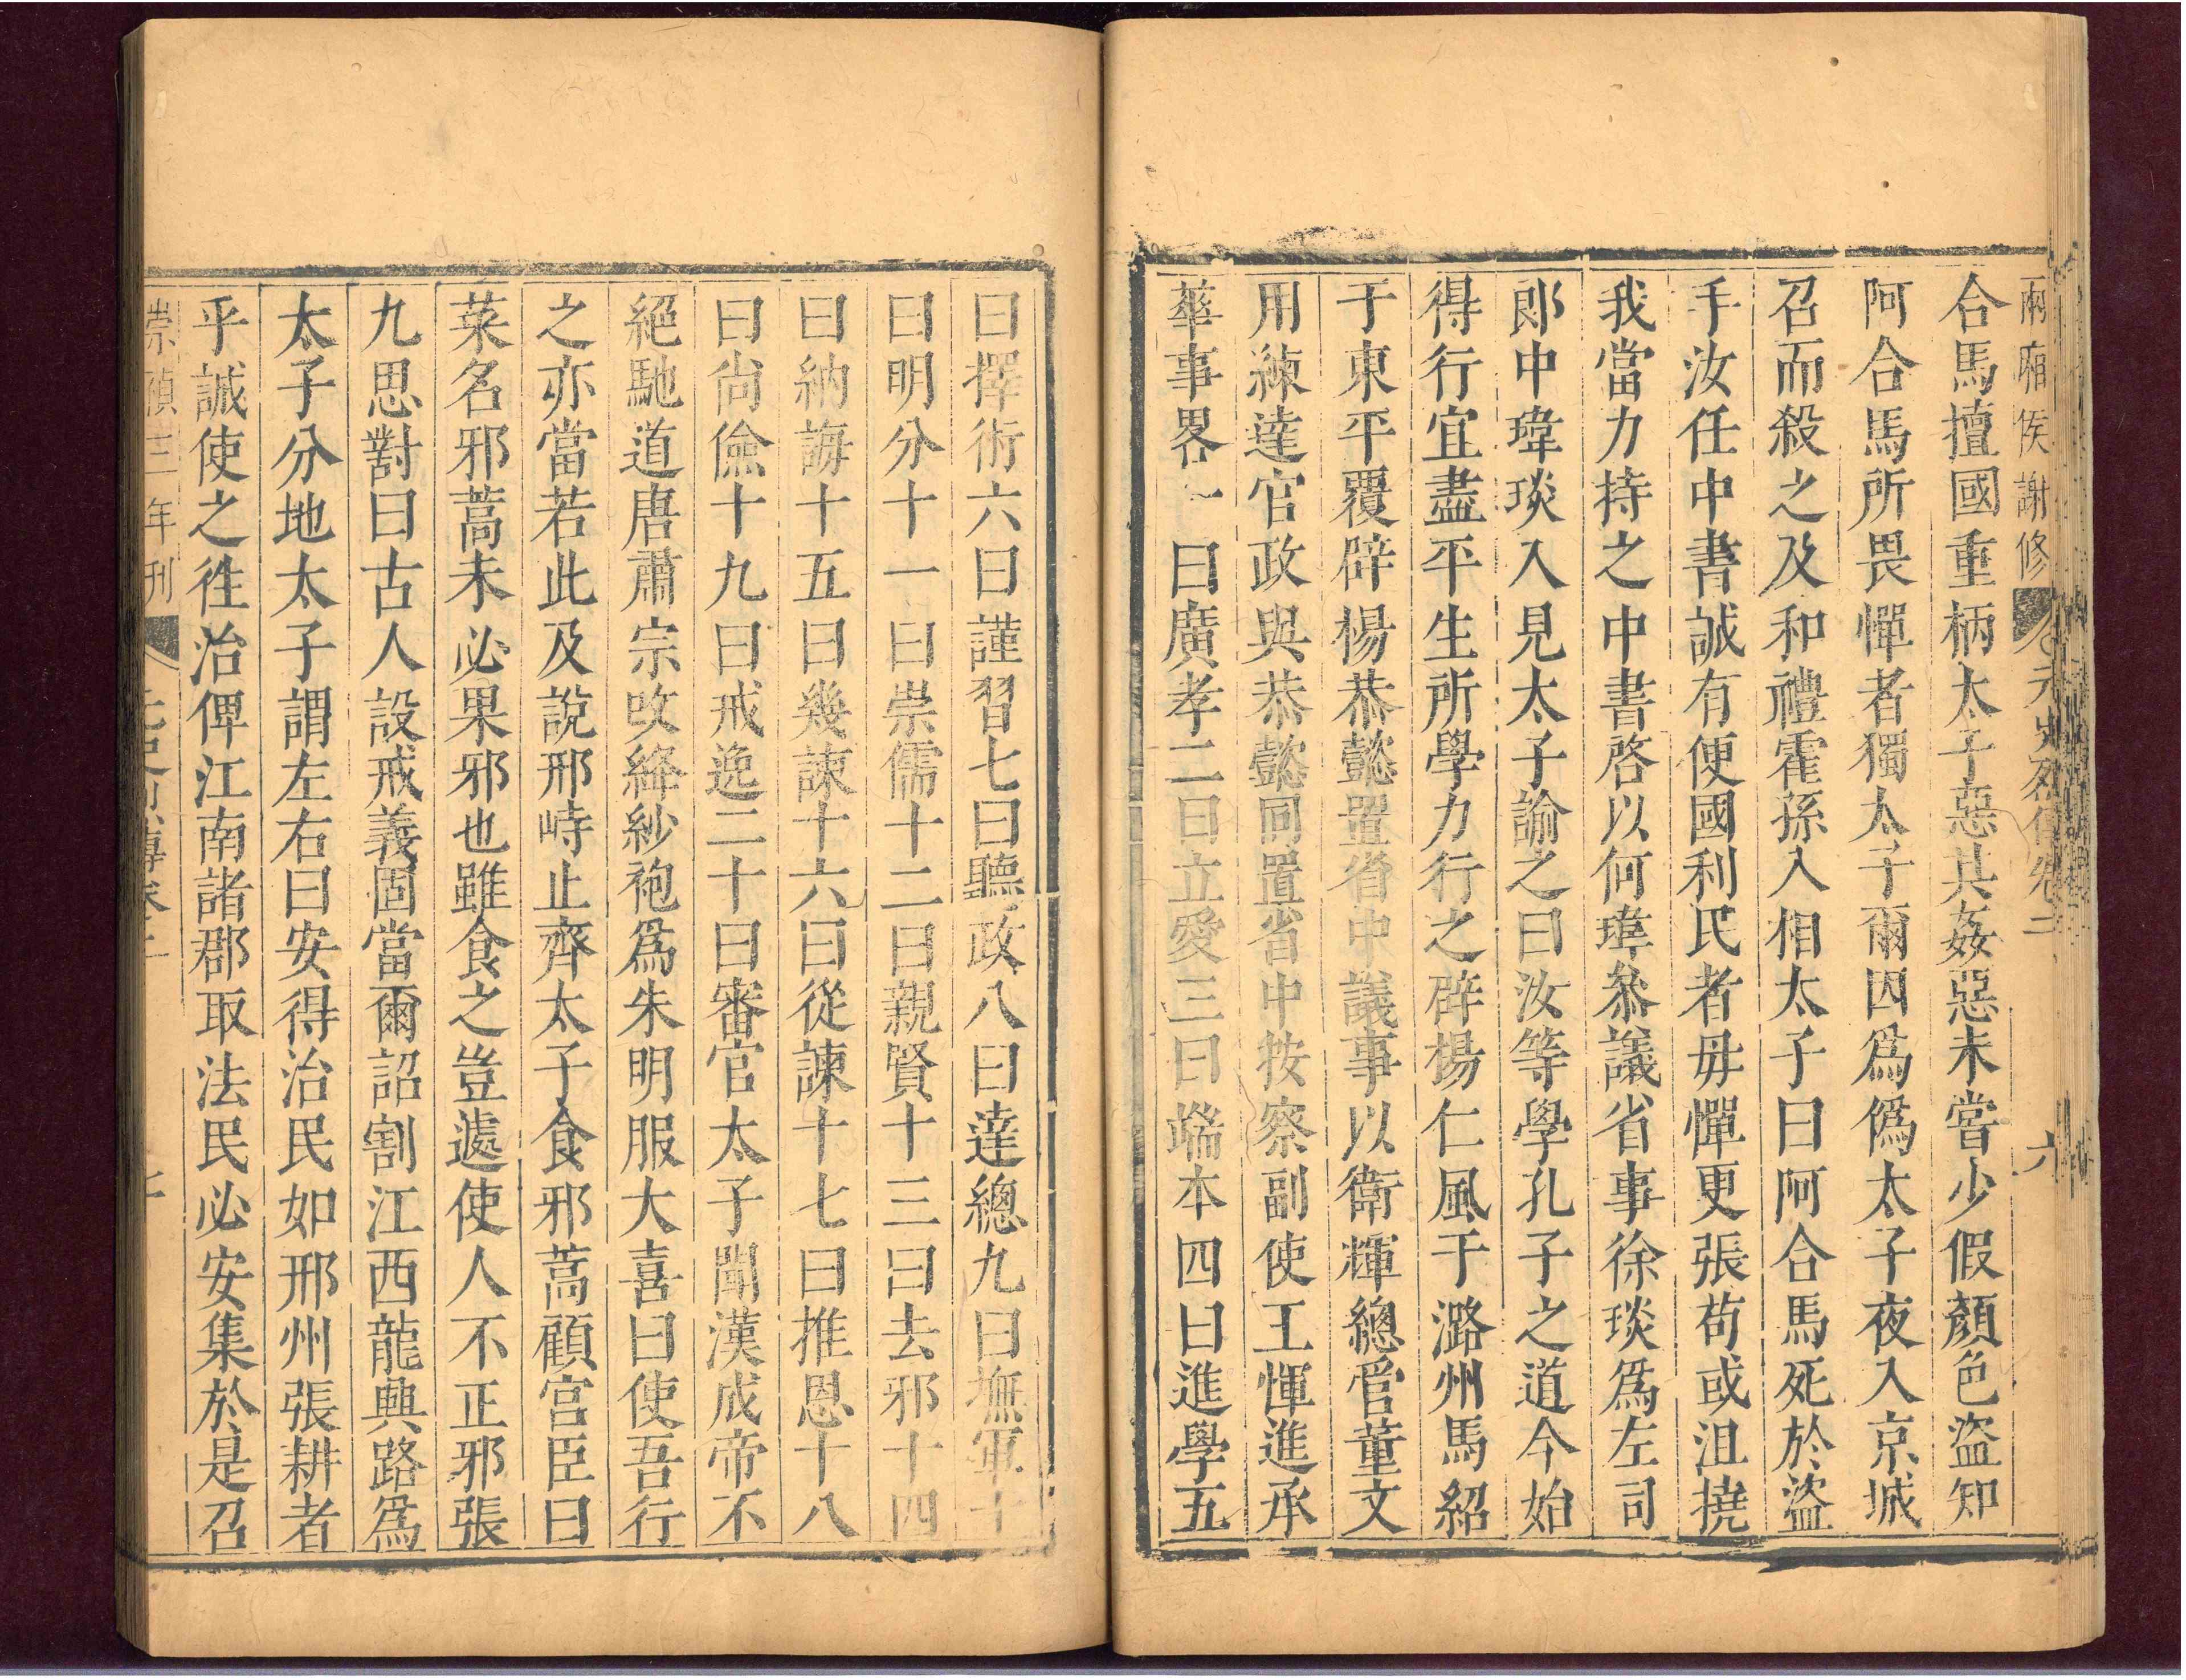 兩廂侯謝修 元史列傳卷二 六
合馬擅國重柄太子惡其姦惡未嘗少假顏色盜知
阿合馬所畏憚者獨太子爾因爲僞太子夜入京城
召而殺之及和禮霍孫入相太子曰阿合馬死於盜
手汝任中書誠有便國利民者毋憚更張苟或沮撓
我當力持之中書啓以何瑋叅議省事徐琰爲左司
郎中瑋琰入見太子諭之曰汝等學孔子之道今始
得行宜盡平生所學力行之辟楊仁風于潞州馬紹
于東平覆辟楊恭懿置省中議事以衛輝總管董文
用練達官政與恭懿同置省中按察副使王惲進承
華事畧一曰廣孝二曰立愛三曰端本四曰進學五
曰擇術六曰謹習七曰聽政八曰達總九曰撫軍十
曰明分十一曰崇儒十二曰親賢十三曰去邪十四
曰納誨十五曰幾諫十六曰從諫十七曰推恩十八
曰尙儉十九曰戒逸二十曰審官太子聞漢成帝不
絕馳道唐肅宗改絳紗袍爲朱明服大喜曰使吾行
之亦當若此及說邢峙止齊太子食邪蒿顧宮臣曰
菜名邪蒿未必果邪也雖食之豈遽使人不正邪張
九思對曰古人設戒義固當爾詔割江西龍興路爲
太子分地太子謂左右曰安得治民如邢州張耕者
乎誠使之徃治俾江南諸郡取法民必安集於是召
崇禎三年刊